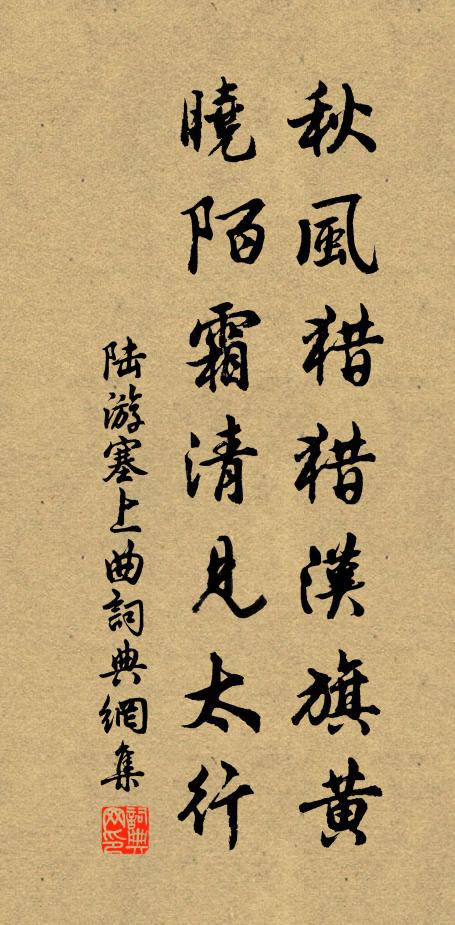 秋風猎猎漢旗黄
曉陌霜清見太行
陆游塞上曲詞典網集
詞典网印